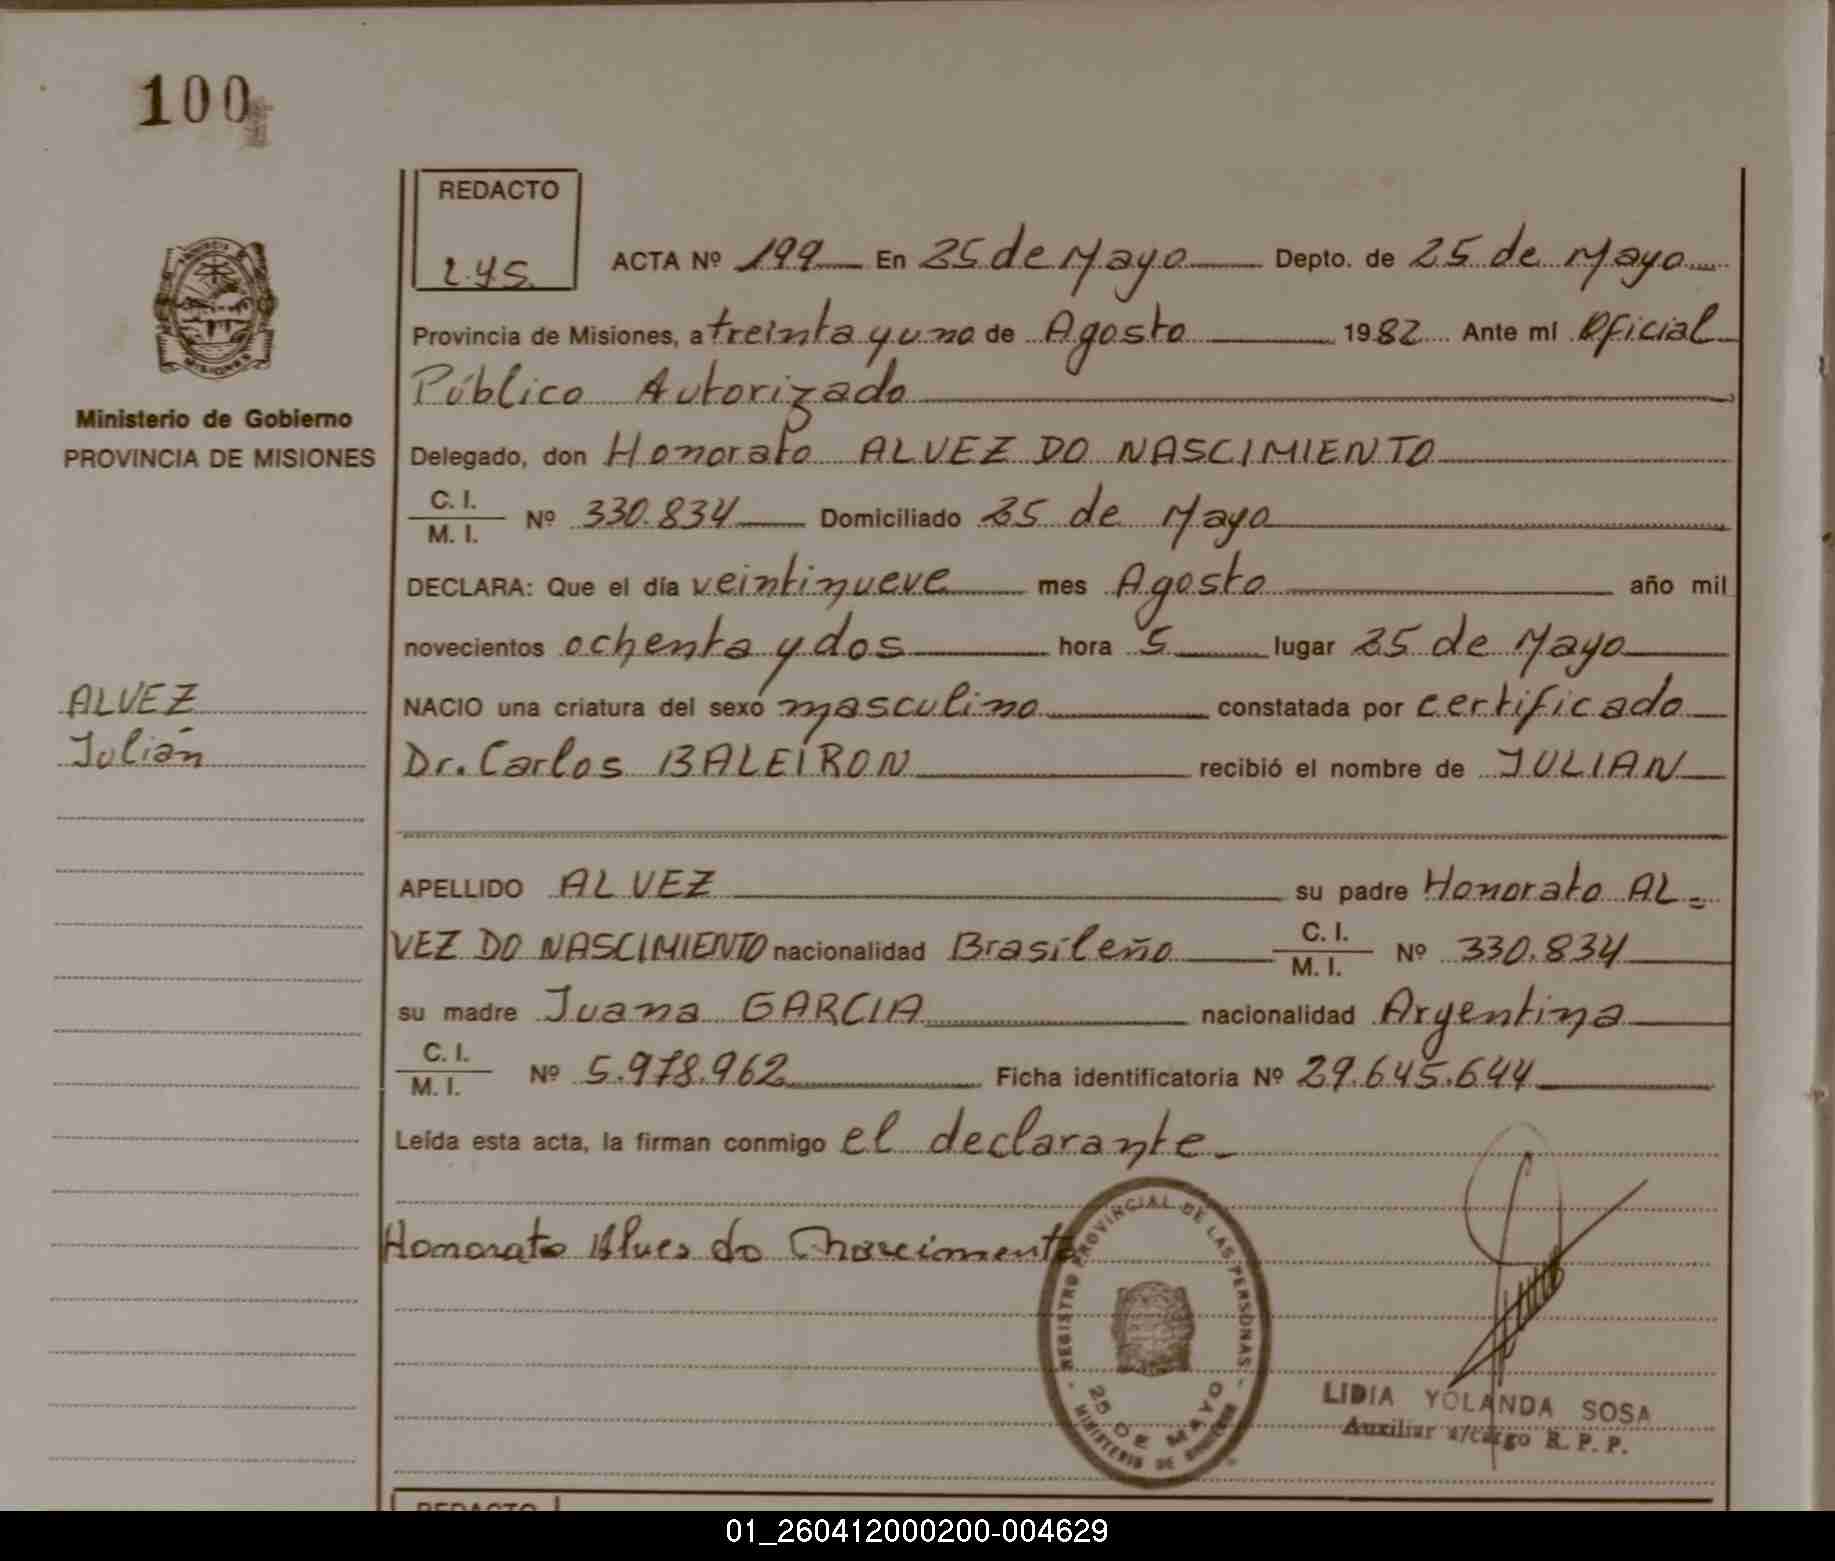 100
REDACTO
L.Y.S.
ACTA Nº 199 En 25 de Mayo Depto. de 25 de Mayo
Provincia de Misiones, a treinta y uno de Agosto 1982 Ante mí Oficial
Público Autorizado
Ministerio de Gobierno
PROVINCIA DE MISIONES
Delegado, don Honorato ALVEZ DO NASCIMIENTO
C. I.
M. I. Nº 330.834 Domiciliado 25 de Mayo
DECLARA: Que el día veintinueve mes Agosto año mil
novecientos ochenta y dos hora 5 lugar 25 de Mayo
ALVEZ
Julián
NACIO una criatura del sexo masculino constatada por certificado
Dr. Carlos BALEIRON recibió el nombre de JULIAN
APELLIDO ALVEZ su padre Honorato AL-
VEZ DO NASCIMIENTO nacionalidad Brasileño C. I. M. I. Nº 330.834
su madre Juana GARCIA nacionalidad Argentina
C. I.
M. I. Nº 5.978.962 Ficha identificatoria Nº 29.645.644
Leída esta acta, la firman conmigo el declarante.
Honorato Alves do Nascimento
REGISTRO PROVINCIAL DE LAS PERSONAS
25 DE MAYO
MINISTERIO DE GOBIERNO
LIDIA YOLANDA SOSA
Auxiliar a/cargo R. P. P.
REDACTO
01_260412000200-004629